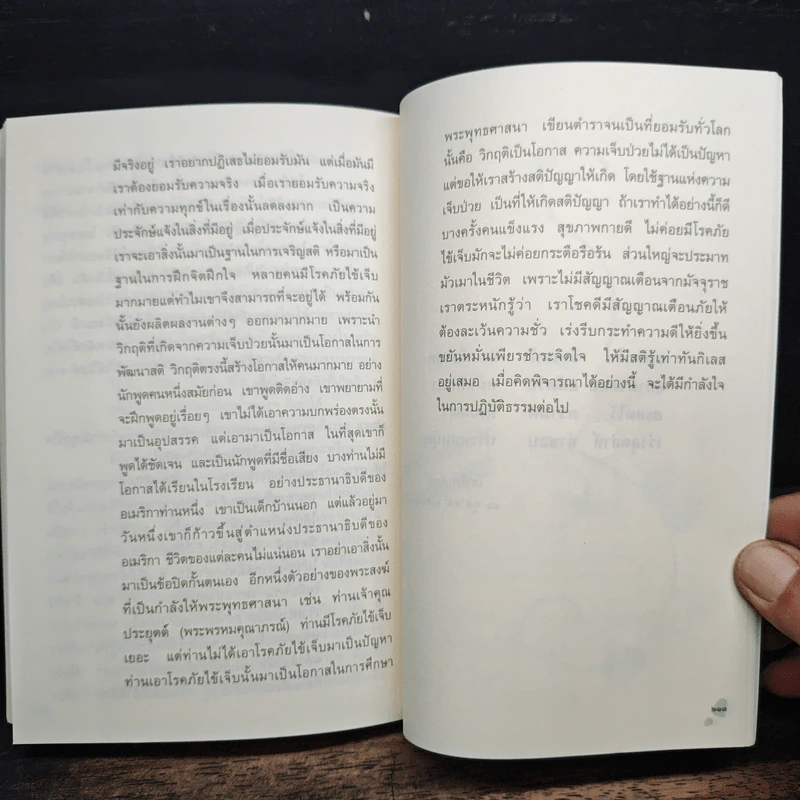 มีจริงอยู่ เราอยากปฏิเสธไม่ยอมรับมัน แต่เมื่อมันมี
เราต้องยอมรับความจริง เมื่อเรายอมรับความจริง
เท่ากับความทุกข์ในเรื่องนั้นลดลงมาก เป็นความ
ประจักษ์แจ้งในสิ่งที่มีอยู่ เมื่อประจักษ์แจ้งในสิ่งที่มีอยู่
เราจะเอาสิ่งนั้นมาเป็นฐานในการเจริญสติ หรือมาเป็น
ฐานในการฝึกจิตฝึกใจ หลายคนมีโรคภัยไข้เจ็บ
มากมายแต่ทำไมเขาจึงสามารถที่จะอยู่ได้ พร้อมกัน
นั้นยังผลิตผลงานต่างๆ ออกมามากมาย เพราะนำ
วิกฤติที่เกิดจากความเจ็บป่วยนั้นมาเป็นโอกาสในการ
พัฒนาสติ วิกฤติตรงนี้สร้างโอกาสให้คนมากมาย อย่าง
นักพูดคนหนึ่งสมัยก่อน เขาพูดติดอ่าง เขาพยายามที่
จะฝึกพูดอยู่เรื่อยๆ เขาไม่ได้เอาความบกพร่องตรงนั้น
มาเป็นอุปสรรค แต่เอามาเป็นโอกาส ในที่สุดเขาก็
พูดได้ชัดเจน และเป็นนักพูดที่มีชื่อเสียง บางท่านไม่มี
โอกาสได้เรียนในโรงเรียน อย่างประธานาธิบดีของ
อเมริกาท่านหนึ่ง เขาเป็นเด็กบ้านนอก แต่แล้วอยู่มา
วันหนึ่งเขาก็ก้าวขึ้นสู่ตำแหน่งประธานาธิบดีของ
อเมริกา ชีวิตของแต่ละคนไม่แน่นอน เราอย่าเอาสิ่งนั้น
มาเป็นข้อปิดกั้นตนเอง อีกหนึ่งตัวอย่างของพระสงฆ์
ที่เป็นกำลังให้พระพุทธศาสนา เช่น ท่านเจ้าคุณ
ประยุตต์ (พระพรหมคุณาภรณ์) ท่านมีโรคภัยไข้เจ็บ
เยอะ แต่ท่านไม่ได้เอาโรคภัยไข้เจ็บมาเป็นปัญหา
ท่านเอาโรคภัยไข้เจ็บนั้นมาเป็นโอกาสในการศึกษา
พระพุทธศาสนา เขียนตำราจนเป็นที่ยอมรับทั่วโลก
นั้นคือ วิกฤติเป็นโอกาส ความเจ็บป่วยไม่ได้เป็นปัญหา
แต่ขอให้เราสร้างสติปัญญาให้เกิด โดยใช้ฐานแห่งความ
เจ็บป่วย เป็นที่ให้เกิดสติปัญญา ถ้าเราทำได้อย่างนี้ก็ดี
บางครั้งคนแข็งแรง สุขภาพกายดี ไม่ค่อยมีโรคภัย
ไข้เจ็บมักจะไม่ค่อยกระตือรือร้น ส่วนใหญ่จะประมาท
มัวเมาในชีวิต เพราะไม่มีสัญญาณเตือนจากมัจจุราช
เราตระหนักรู้ว่า เราโชคดีมีสัญญาณเตือนภัยให้
ต้องละเว้นความชั่ว เร่งรีบกระทำความดีให้ยิ่งขึ้น
ขยันหมั่นเพียรชำระจิตใจ ให้มีสติรู้เท่าทันกิเลส
อยู่เสมอ เมื่อคิดพิจารณาได้อย่างนี้ จะได้มีกำลังใจ
ในการปฏิบัติธรรมต่อไป